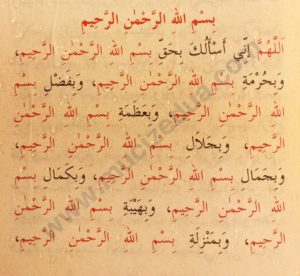 بِسْمِ اللهِ الرَّحْمٰنِ الرَّحِيمِ
اَللّٰهُمَّ اِنِّي أَسْأَلُكَ بِحَقِّ بِسْمِ اللهِ الرَّحْمٰنِ الرَّحِيمِ،
وَبِحُرْمَةِ بِسْمِ اللهِ الرَّحْمٰنِ الرَّحِيمِ، وَبِفَضْلِ بِسْمِ
اللهِ الرَّحْمٰنِ الرَّحِيمِ، وَبِعَظَمَةِ بِسْمِ اللهِ الرَّحْمٰنِ
الرَّحِيمِ، وَبِجَلَالِ بِسْمِ اللهِ الرَّحْمٰنِ الرَّحِيمِ،
وَبِجَمَالِ بِسْمِ اللهِ الرَّحْمٰنِ الرَّحِيمِ، وَبِكَمَالِ بِسْمِ
اللهِ الرَّحْمٰنِ الرَّحِيمِ، وَبِهَيْبَةِ بِسْمِ اللهِ الرَّحْمٰنِ
الرَّحِيمِ، وَبِمَنْزِلَةِ بِسْمِ اللهِ الرَّحْمٰنِ الرَّحِيمِ،
www.mucizedua.com